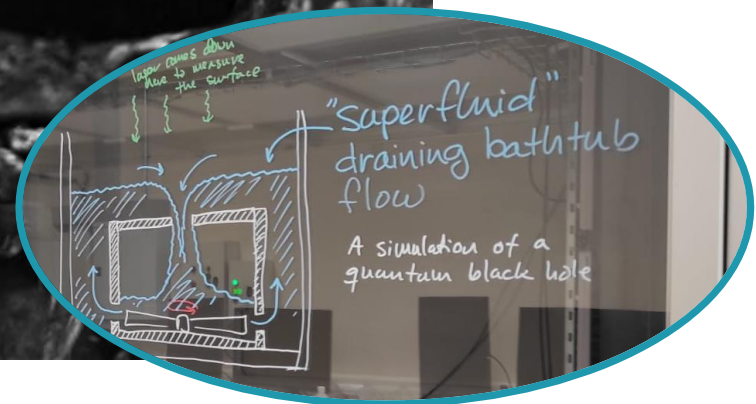 laser comes down
here to measure
the surface
"superfluid"
draining bathtub
flow
A simulation of a
quantum black hole